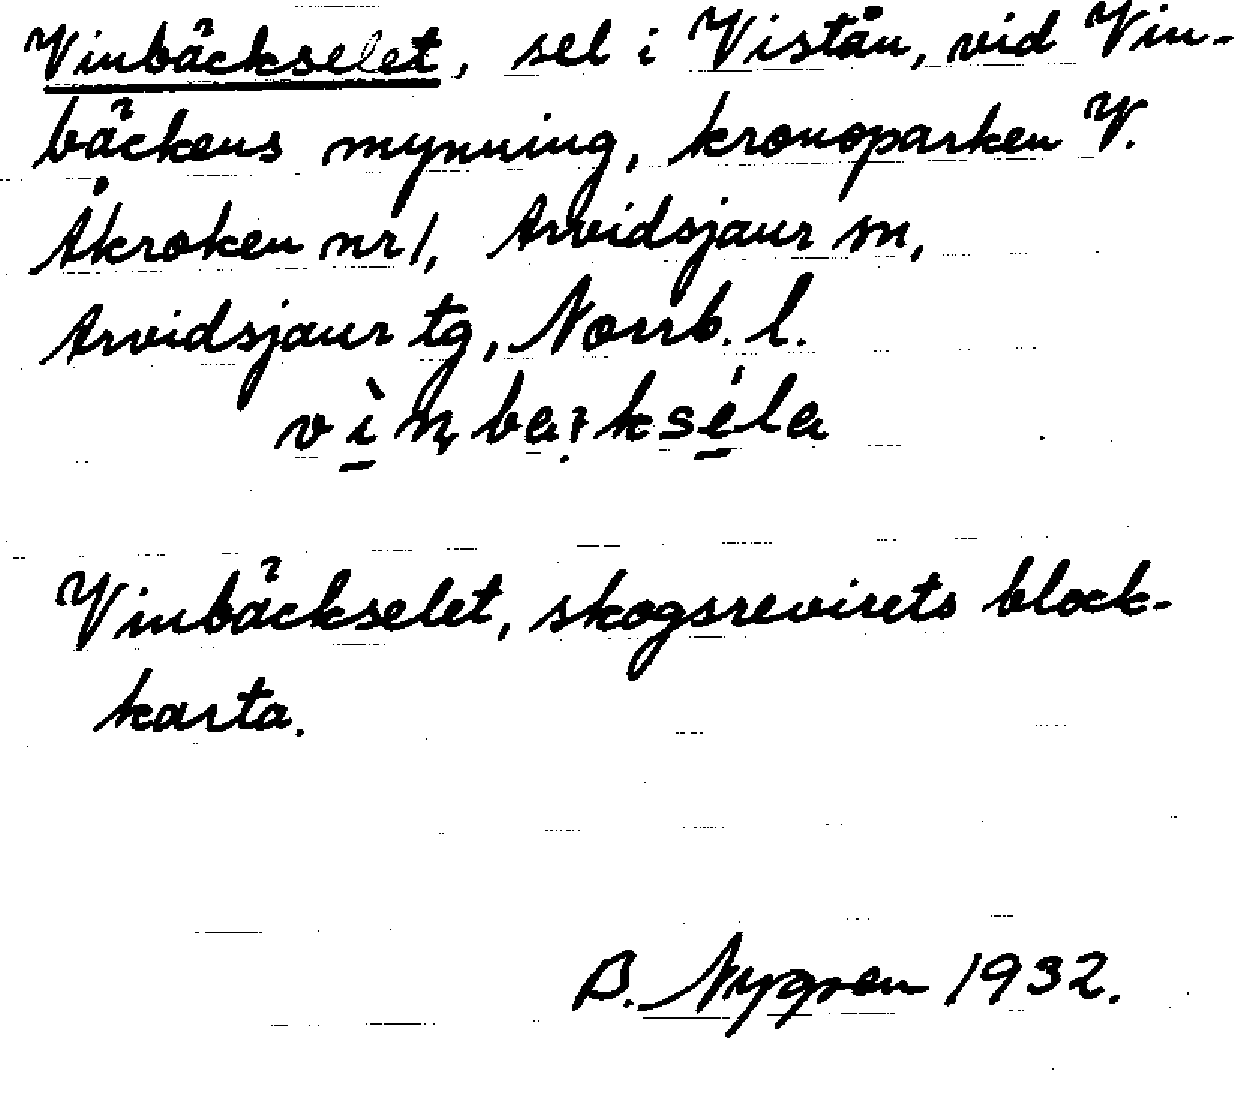 Vinbäckselet, sel i Vistån, vid Vin-
bäckens mynning, kronoparken V.
Åkroken nr 1, Arvidsjaur sn,
Arvidsjaur tg, Norrb. l.
Vinbäckselet, skogsrevirets block-
karta.
B. Nygren 1932.